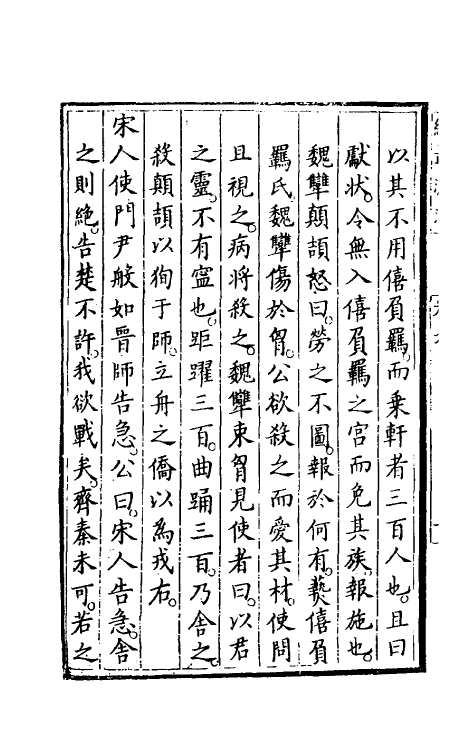 以其不用僖負羈。而乗軒者三百人也。且曰
獻狀。令無入僖負羈之宫而免其族。報施也。
魏犫顛頡怒曰。勞之不圖。報於何有。爇僖負
羈氏。魏犫傷於胷。公欲殺之而愛其材。使問
且視之。病將殺之。魏犫束胷見使者曰。以君
之靈。不有寍也。距躍三百。曲踊三百。乃舍之。
殺顛頡以狥于師。立舟之僑以為戎右。
宋人使門尹般如晉師告急。公曰。宋人告急。舍
之則絶。告楚不許。我欲戰矣。齊秦未可。若之